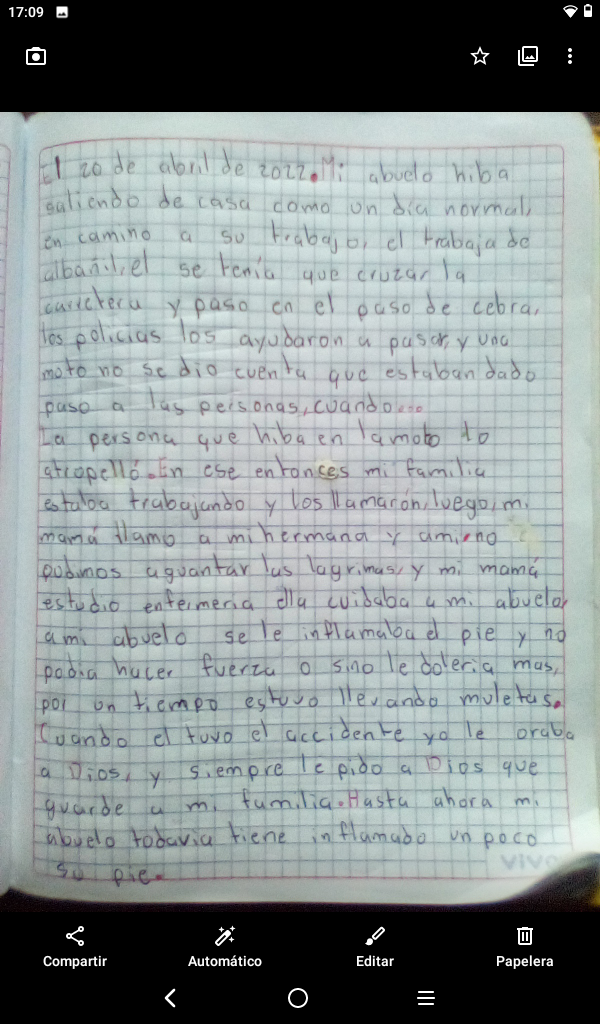 17:09
El 20 de abril de 2022. Mi abuelo hiba
saliendo de casa como un dia normal,
en camino a su trabajo, el trabaja de
albañil, el se tenía que cruzar la
carretera y paso en el paso de cebra,
los policias los ayudaron a pasar, y una
moto no se dio cuenta que estaban dado
paso a las personas, cuando...
La persona que hiba en la moto lo
atropelló. En ese entonces mi familia
estaba trabajando y los llamarón, luego, mi
mamá llamo a mi hermana y a mi, no
podimos aguantar las lagrimas, y mi mamá
estudio enfermeria ella cuidaba a mi abuelo,
a mi abuelo se le inflamaba el pie y no
podia hacer fuerza o sino le doleria mas,
por un tiempo estuvo llevando muletas.
Cuando el tuvo el accidente yo le oraba
a Dios, y siempre le pido a Dios que
guarde a mi familia. Hasta ahora mi
abuelo todavia tiene inflamado un poco
su pie.
vivo
Compartir
Automático
Editar
Papelera